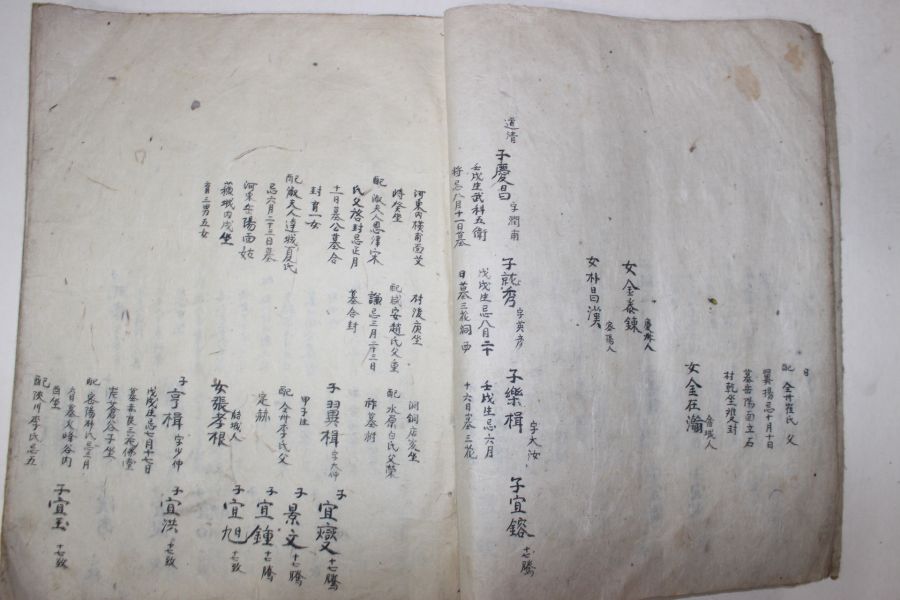 日
配全州崔氏父
翼揚忌十月十日
墓岳陽面立石
村乾坐雙封
女金在瀚
晉城人
女金泰鍊
慶州人
女朴昌漢
密陽人
道清
子慶昌字潤甫
壬戌生武科五衛
將忌八月十一日墓
子就秀字英彦
戊戌生忌八月二十
日墓三花洞酉
子樂楫字大汝
壬戌生忌六月
十六日墓三花
子宜鎔
十七騰
河東內橫甫面艾
峙癸坐
配淑夫人恩津宋
氏父啓封忌正月
十一日墓公墓合
封育一女
配淑夫人達城夏氏
忌六月二十三日墓
河東岳陽面姑
蘇城內戌坐
育三男五女
卯後庚坐
配咸安趙氏父重
謙忌三月二十三日
墓合封
洞銅店亥坐
配水原白氏父榮
祚墓祔
子翼楫字大仲
甲子生
配全州李氏父
定赫
女張孝根
結城人
子亨楫字少仲
戊戌生忌七月十七日
墓赤良三花佛堂
谷子坐
配密陽朴氏忌三月
日墓火峰谷丙
酉坐
配陜川李氏忌五
子宜燮十七騰
子景文十七騰
子宜鍾十七騰
子宜旭十七致
子宜洪十七致
子宜玉十七致